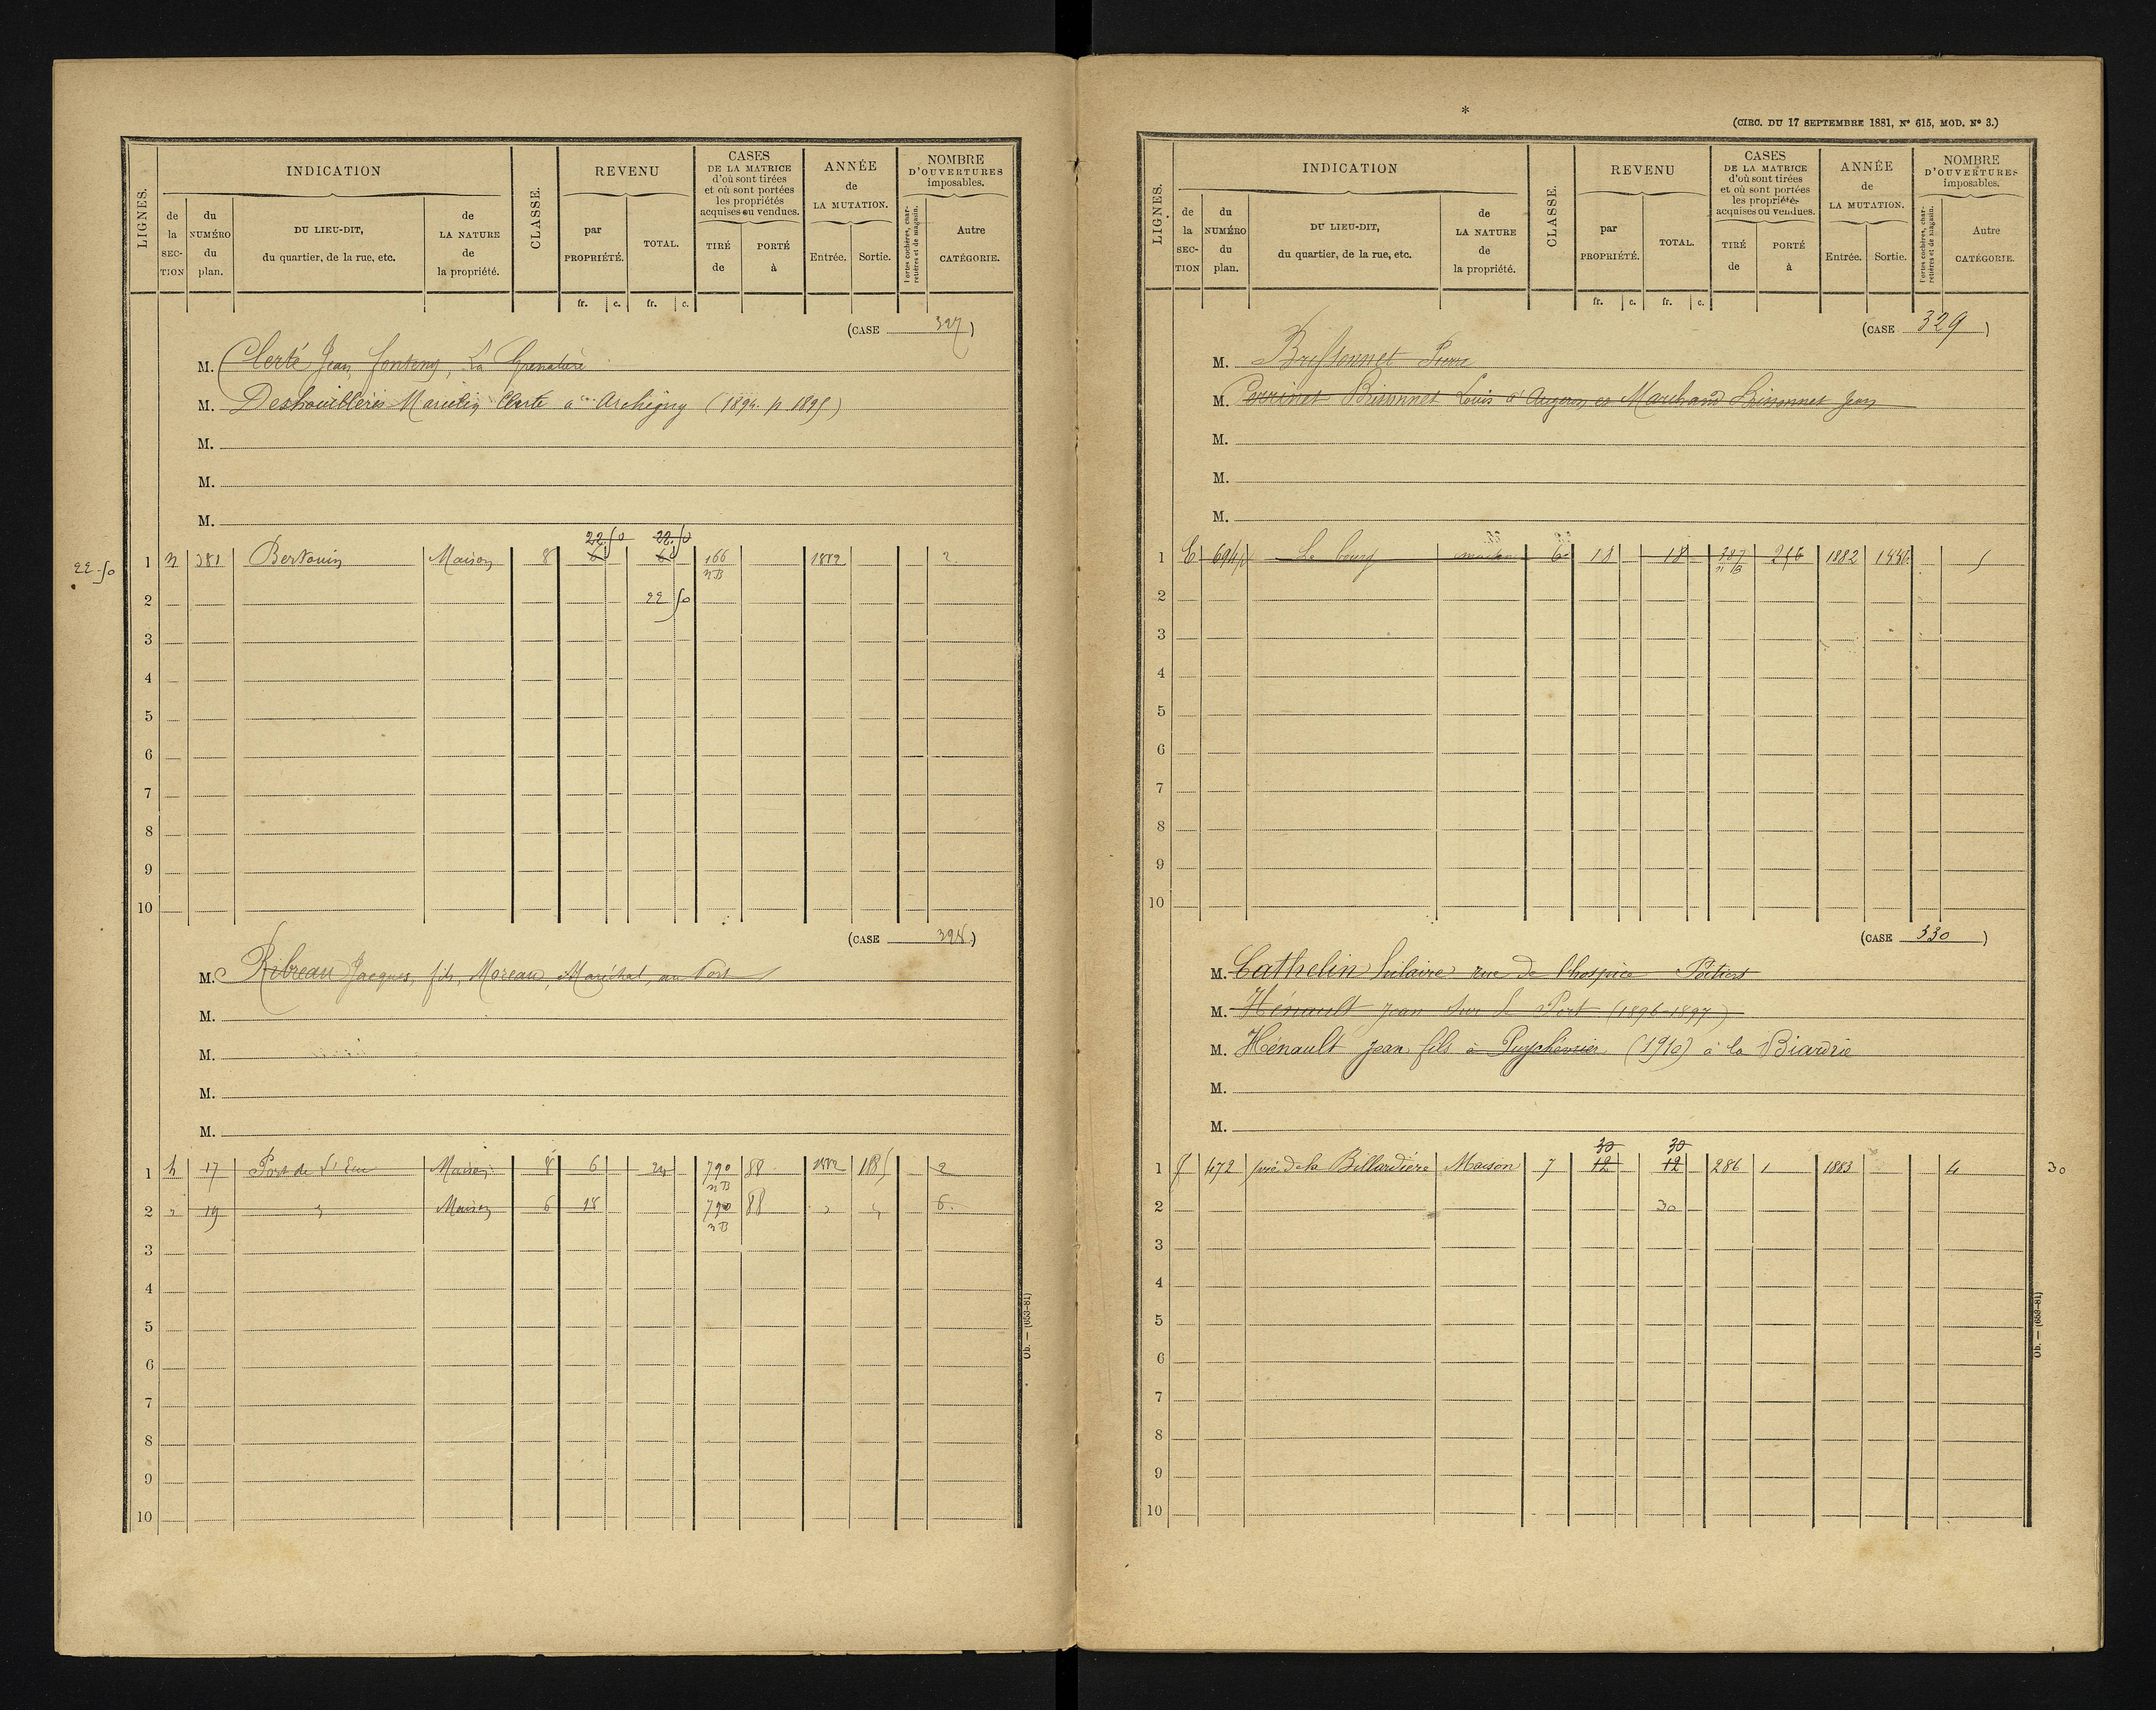 LIGNES.
INDICATION
de la SECTION
du NUMÉRO du plan.
DU LIEU-DIT, du quartier, de la rue, etc.
de LA NATURE de la propriété.
CLASSE.
REVENU
par PROPRIÉTÉ.
TOTAL.
CASES DE LA MATRICE d'où sont tirées et où sont portées les propriétés acquises ou vendues.
TIRÉ de
PORTÉ à
ANNÉE de LA MUTATION.
Entrée.
Sortie.
NOMBRE D'OUVERTURES imposables.
Portes cochères, charretières et de magasin.
Autre CATÉGORIE.
fr. c. fr. c.
(CASE 327)
M. Clerté Jean
M. Deshouillères Marcelin Clerté à Archigny (1894. p. 1895)
M.
M.
M.
22.50 22.50
22.50 1 381 Maison 8 6 6 166 1882 2
n B
2 22 50
3
4
5
6
7
8
9
10
(CASE 328)
M. Ribreau Jacques, fils, Moreau, Maréchal, au Port
M.
M.
M.
M.
1 h 17 Port de Maison 8 6 24 790 88 1882 1885 2
n B
2 " 19 " Maison 6 18 790 88 " " 6
n B
3
4
5
6
7
8
9
10
Ob. — (653-81)
*
(CIRC. DU 17 SEPTEMBRE 1881, N° 615, MOD. N° 3.)
LIGNES.
INDICATION
de la SECTION
du NUMÉRO du plan.
DU LIEU-DIT, du quartier, de la rue, etc.
de LA NATURE de la propriété.
CLASSE.
REVENU
par PROPRIÉTÉ.
TOTAL.
CASES DE LA MATRICE d'où sont tirées et où sont portées les propriétés acquises ou vendues.
TIRÉ de
PORTÉ à
ANNÉE de LA MUTATION.
Entrée.
Sortie.
NOMBRE D'OUVERTURES imposables.
Portes cochères, charretières et de magasin.
Autre CATÉGORIE.
fr. c. fr. c.
(CASE 329)
M. Brissonnet Pierre
M. Perrinet Brisonnet Louis à et Marchand Brissonnet Jean
M.
M.
M.
1 E Le bourg maison 6 18 18 387 1882
n B
2
3
4
5
6
7
8
9
10
(CASE 330)
M. Cathelin hilaire rue de l'hospice Poitiers
M. Hénault Jean sur le Port (1896-1897)
M. Hénault Jean fils à (1910) à la Biardrie
M.
M.
30 30
1 472 pré de la Billardière Maison 7 12 12 286 1 1883 4 30
2 30
3
4
5
6
7
8
9
10
Ob. — (653-81)